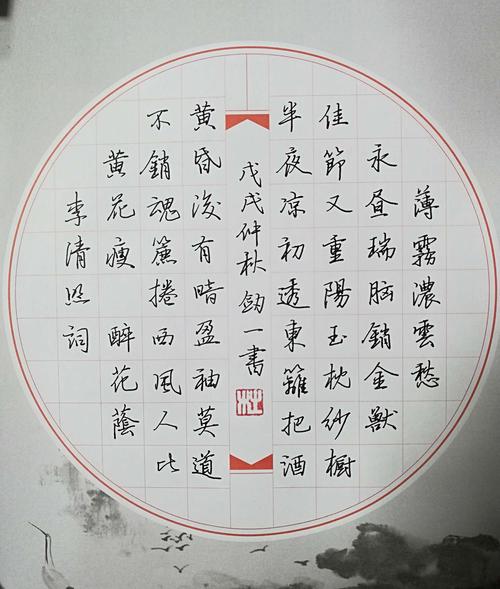 薄霧濃雲愁
永昼瑞脑銷金獸
佳節又重陽玉枕紗橱
半夜凉初透東籬把酒
黄昏後有暗盈袖莫道
不銷魂簾捲西風人比
黄花瘦 醉花蔭
李清照詞
戊戌仲秋劍一書